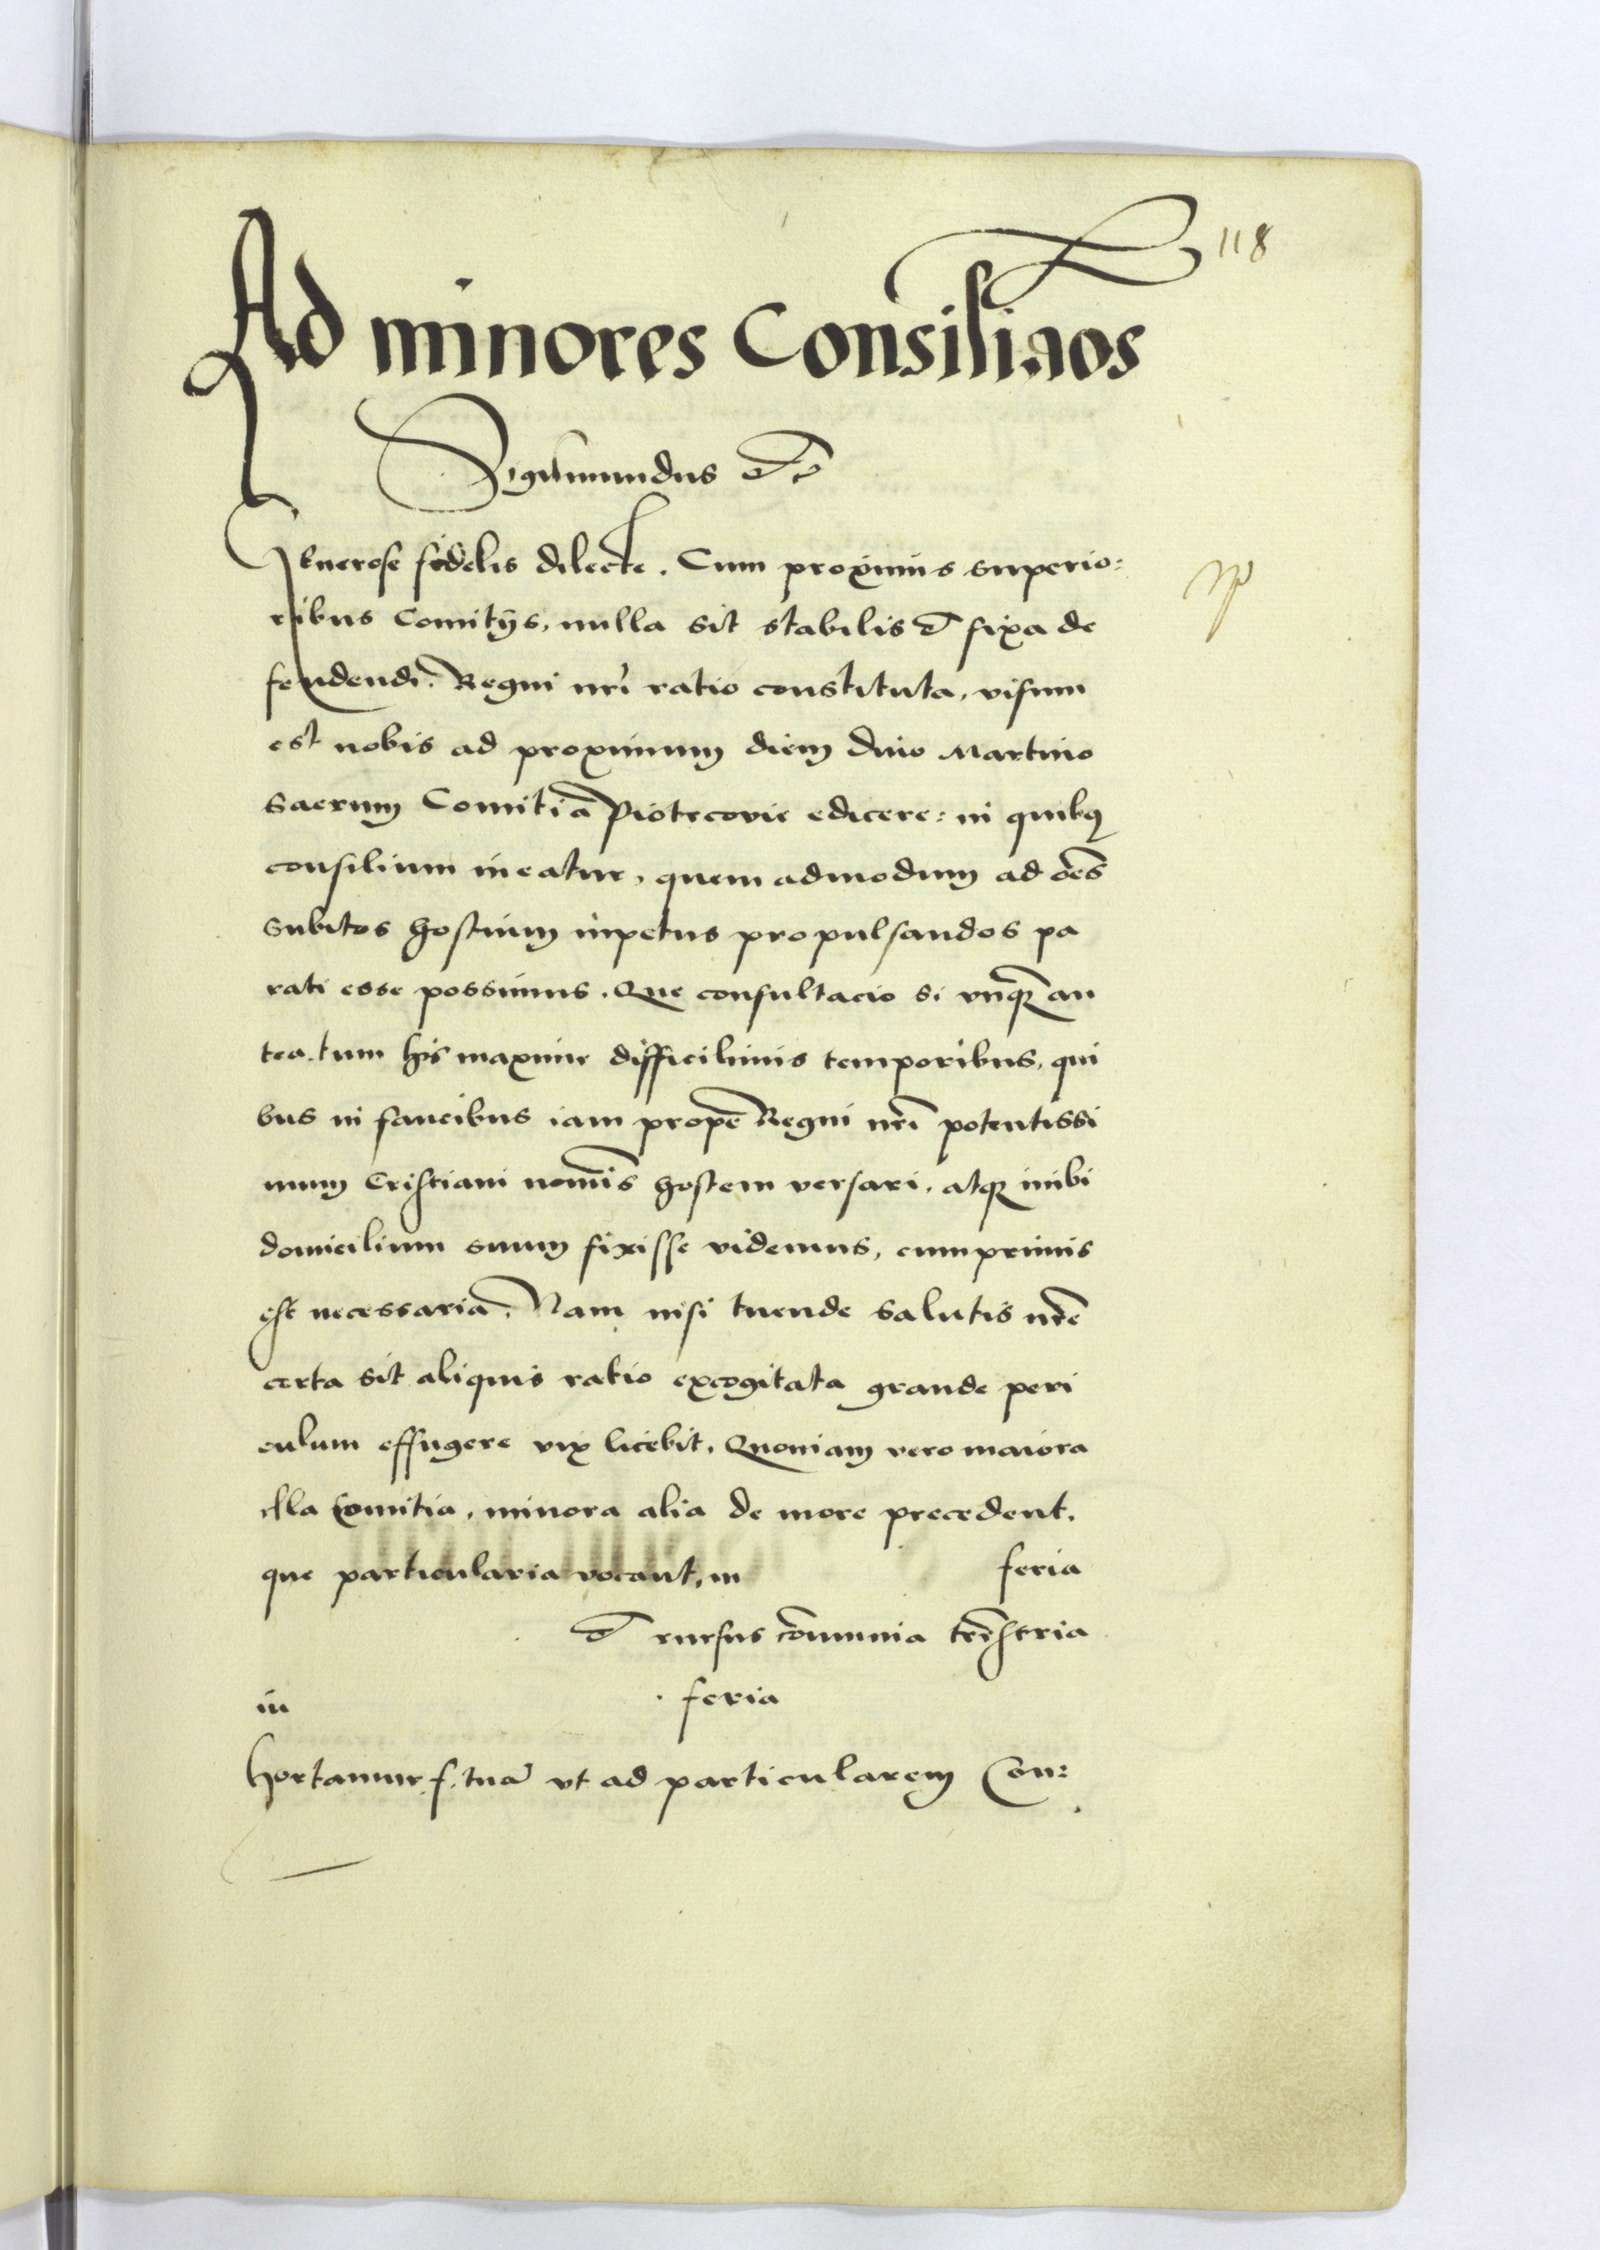 118
Ad minores Consiliaos
Sigismundus etc
Generose fidelis dilecte. Cum proximis superio:
ribus Comitijs, nulla sit stabilis et fixa de
fendendi Regni nri ratio constituta, visum
est nobis ad proximum diem diuo Martino
sacrum Comitia Piotrcovie edicere: in quibus
consilium ineatur, quem admodum ad oes
subitos hostium impetus propulsandos pa
rati esse possimus. Que consultacio si vnqz an
tea. tum his maxime difficilimis temporibus, qui
bus in faucibus iam prope Regni nri potentissi
mum Cristiani nominis hostem versari, atqz inibi
domicilium suum fixisse videmus, cumprimis
est necessaria. Nam nisi tuende salutis nre
certa sit aliquis ratio excogitata grande peri
culum effugere vix licebit. Quoniam vero maiora
illa Comitia, minora alia de more precedent,
que particularia vocant, in feria
et rursus communia trestria
in feria
hortamur f. tua vt ad particularem Con: